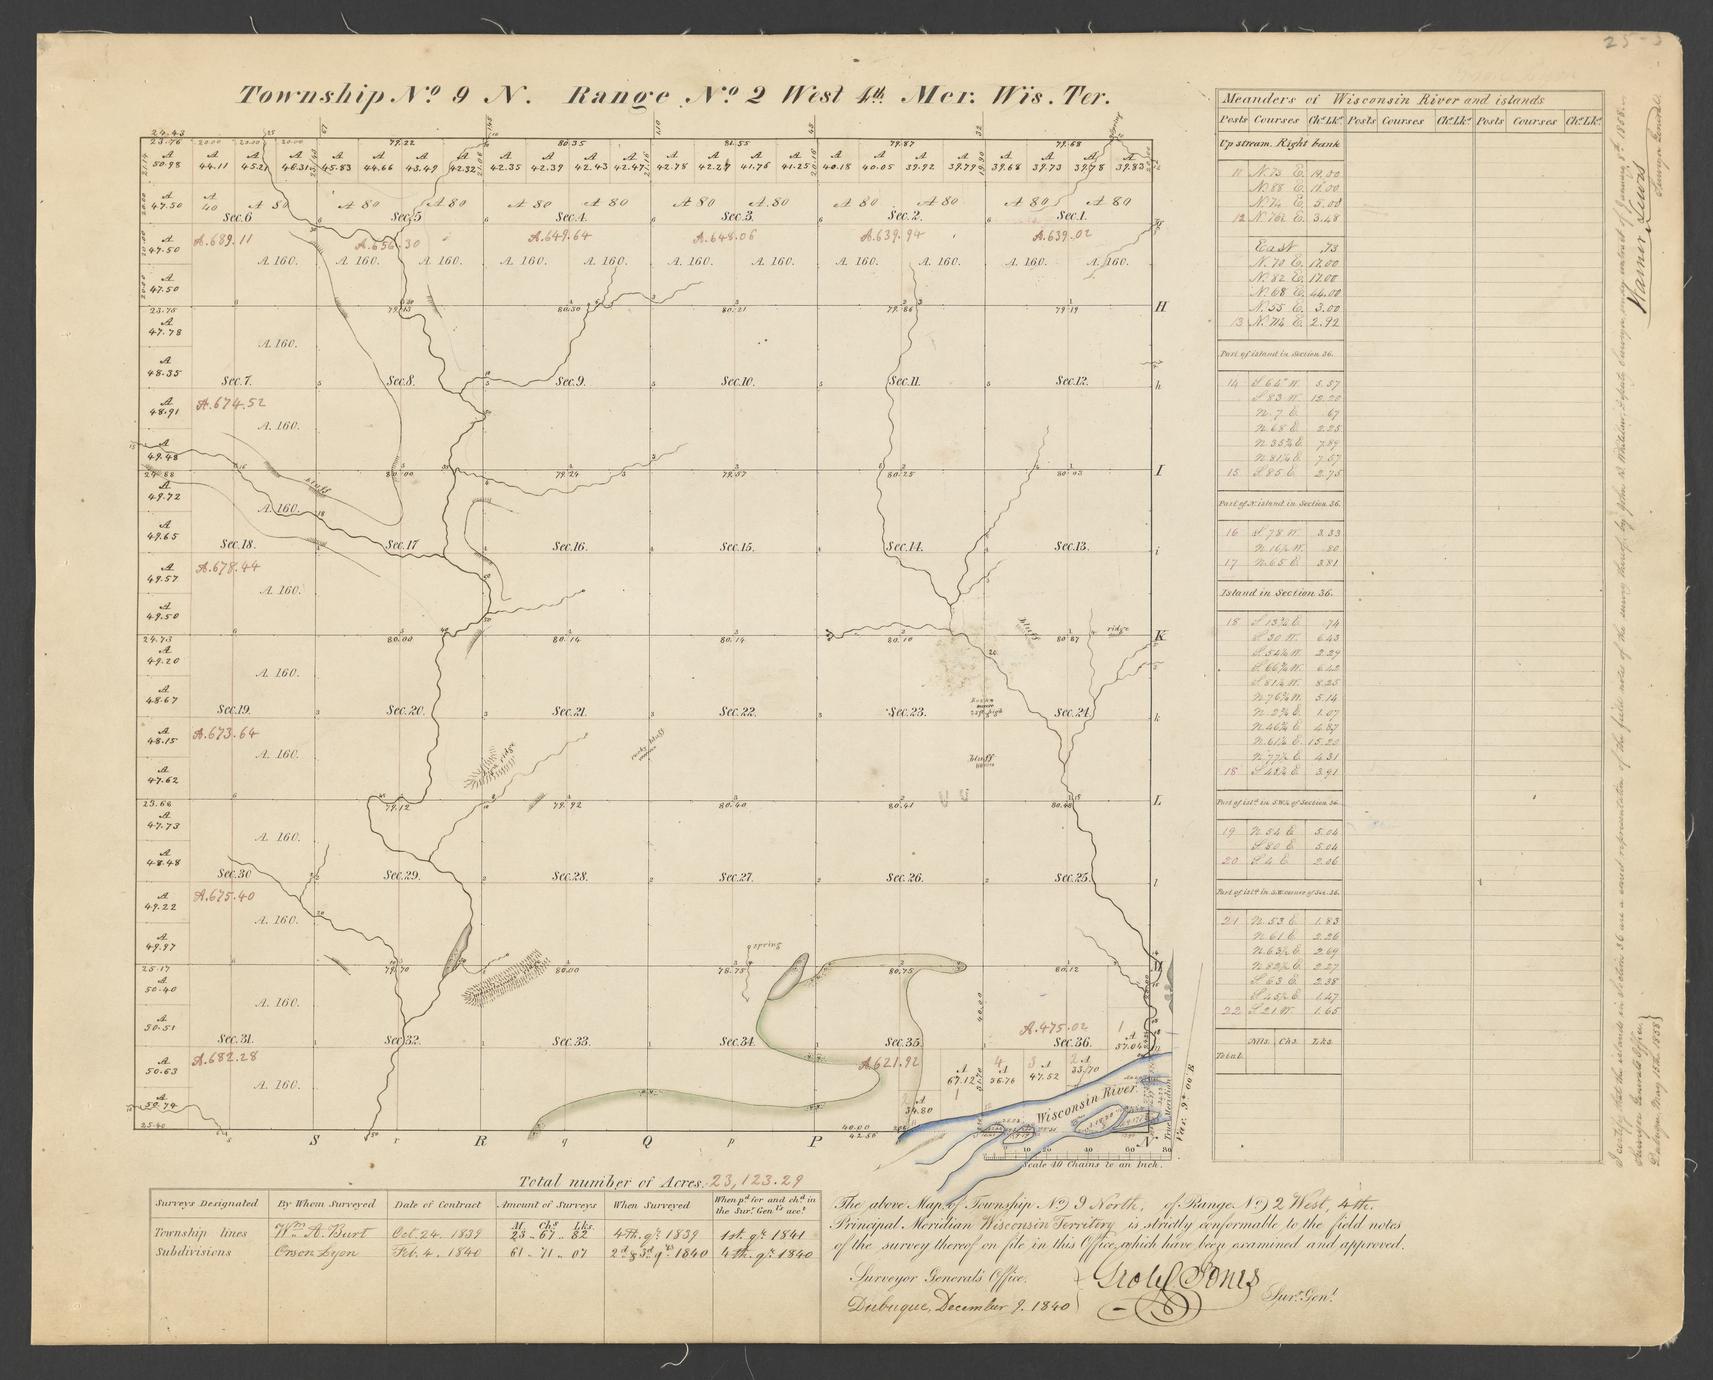 Township Nº 9 N. Range Nº 2 West 4th Mer. Wis. Ter.
24.43
23.76 20.00 20.00 20.00 79.22 80.35 81.55 79.87 79.68
A 50.98 A 44.11 A 45.21 A 46.31 A 45.83 A 44.66 A 43.49 A 42.32 A 42.35 A 42.39 A 42.43 A 42.47 A 42.78 A 42.27 A 41.76 A 41.25 A 40.18 A 40.05 A 39.92 A 39.79 A 39.68 A 39.73 A 39.78 A 39.83
A 47.50 A 40 A 80 A 80 A 80 A 80 A 80 A 80 A 80 A 80 A 80 A 80 A 80
Sec.6 Sec.5 Sec.4. Sec.3. Sec.2. Sec.1.
A 47.50 A.689.11 A.656.30 A.649.64 A.648.06 A.639.94 A.639.02
A. 160. A. 160. A. 160. A. 160. A. 160. A. 160. A. 160. A. 160. A. 160. A. 160. A. 160.
A 47.50
23.75 79.13 80.30 80.21 79.86 79.19 H
A 47.78
A. 160.
A 48.35
Sec.7. Sec.8. Sec.9. Sec.10. Sec.11. Sec.12. h
A 48.91 A.674.52
A. 160.
A 49.48
24.88 80.00 79.24 79.57 80.25 80.03 I
A 49.72 bluff
A. 160.
A 49.65
Sec.18. Sec.17 Sec.16. Sec.15. Sec.14. Sec.13. i
A 49.57 A.678.44
A. 160.
A 49.50
bluff ridge
24.73 80.00 80.14 80.14 80.10 80.87 K
A 49.20
A. 160.
A 48.67
Sec.19. Sec.20. Sec.21. Sec.22. Sec.23. Sec.24. k
A 48.15 A.673.64
A. 160. ridge bluff bluff
A 47.62
23.68 79.12 79.92 80.40 80.41 80.48 L
A 47.73
A. 160.
A 48.48
Sec.30 Sec.29. Sec.28. Sec.27. Sec.26. Sec.25. l
A 49.22 A.675.40
A. 160.
A 49.97 spring
25.17 79.70 80.00 78.75 80.75 80.12 M
A 50.40
A. 160.
A 50.51 A.475.02
Sec.31. Sec.32. Sec.33. Sec.34. Sec.35. Sec.36. A 37.04
A 50.63 A.682.28 A.621.92
A. 160. A 67.12 A 56.76 A 47.52 A 33.70
A 50.74 A 34.80 Wisconsin River
25.40 40.00
42.56
s S r R q Q p P N
True Meridian
Var. 9° 00' E
Scale 40 Chains to an Inch.
Total number of Acres. 23,123.29
Surveys Designated By Whom Surveyed Date of Contract Amount of Surveys When Surveyed When pd for and chd in the Surr Genl's acct
M. Chs Lks.
Township lines Wm A. Burt Oct. 24. 1839 23 .. 67 .. 82 4th. qr 1839 1st. qr 1841
Subdivisions Orson Lyon Feb. 4. 1840 61 .. 71 .. 07 2d & 3d qrs 1840 4th. qr 1840
The above Map of Township Nº 9 North, of Range Nº 2 West, 4th.
Principal Meridian Wisconsin Territory is strictly conformable to the field notes
of the survey thereof on file in this Office, which have been examined and approved.
Surveyor General's Office.
Dubuque, December 9. 1840
Geo W Jones
Surr Genl
Meanders of Wisconsin River and islands
Posts Courses Chs.Lks. Posts Courses Chs.Lks. Posts Courses Chs.Lks.
Up stream. Right bank
11 N. 73 E. 19.00
N. 88 E. 11.00
N. 74 E. 5.00
12 N. 76½ E. 3.48
East .73
N. 70 E. 17.00
N. 82 E. 17.00
N. 68 E. 44.00
N. 55 E. 3.00
13 N. 71½ E. 2.92
Part of island in Section 36.
14 S 64 W. 5.57
S 83 W. 12.20
N. 7 E. .67
N. 68 E. 2.25
N 35¾ E 7.89
N 81¼ E. 7.57
15 S 85 E 2.75
Part of N. island in Section 36.
16 S 78 W 3.33
N 16½ W. .80
17 N 65 E 3.81
Island in Section 36.
18 S 13¾ E .74
S 30 W. 6.43
S 54½ W. 2.29
S 66¾ W. 6.42
S 81½ W. 8.25
N 76¾ W. 5.14
N. 2¾ E. 1.07
N 46¾ E 4.87
N. 61½ E. 15.20
N 77½ E 4.31
18 S 48¾ E 3.91
Part of isld in S.W¼ of Section 36
19 N 54 E 5.04
S 80 E 5.04
20 S 4 E 2.06
Part of isld in S.W. corner of Sec. 36.
21 N. 53 E. 1.83
N 61 E 2.26
N 63½ E 2.69
N 82½ E 2.27
S 63 E 2.38
S 45½ E 1.47
22 S 21 W. 1.65
Mls. Chs. Lks.
Total
I certify that the islands in section 36 are a correct representation of the field notes of the survey thereof by John B.
Surveyor General's Office,
Dubuque, May 15th. 1858
Warner Lewis
Surveyor General.